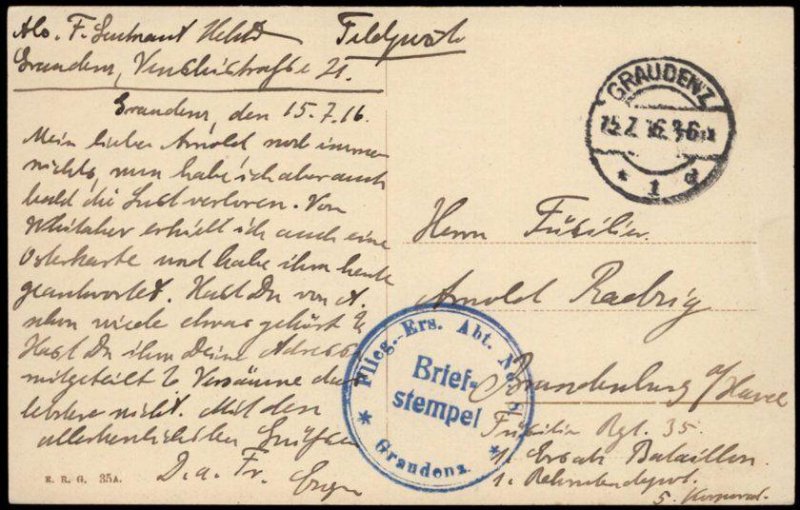 Abs. F. Leutnant Feldpost
Graudenz, 21.
Graudenz, den 15.7.16.
Mein lieber Arnold noch immer
nichts, nun habe ich aber auch
bald die Lust verloren. Von
Whitaker erhielt ich auch eine
Osterkarte und habe ihm heute
geantwortet. Hast Du von A.
schon wieder etwas gehört?
Hast Du ihm Deine Adresse
mitgeteilt? Versäume das
letztere nicht. Mit den
allerherzlichsten Grüßen
D. a. Fr.
E. R. G. 35A.
GRAUDENZ
15.7.16.
* 1 d
Herrn Füsilier
Arnold Radzig
Brandenburg a/Havel
Füsilier Rgt. 35.
1. Ersatz Bataillon.
1. Rekrutendepot.
5. Korporal.
Flieg.-Ers. Abt. No. 8
Brief-
stempel
* Graudenz. *